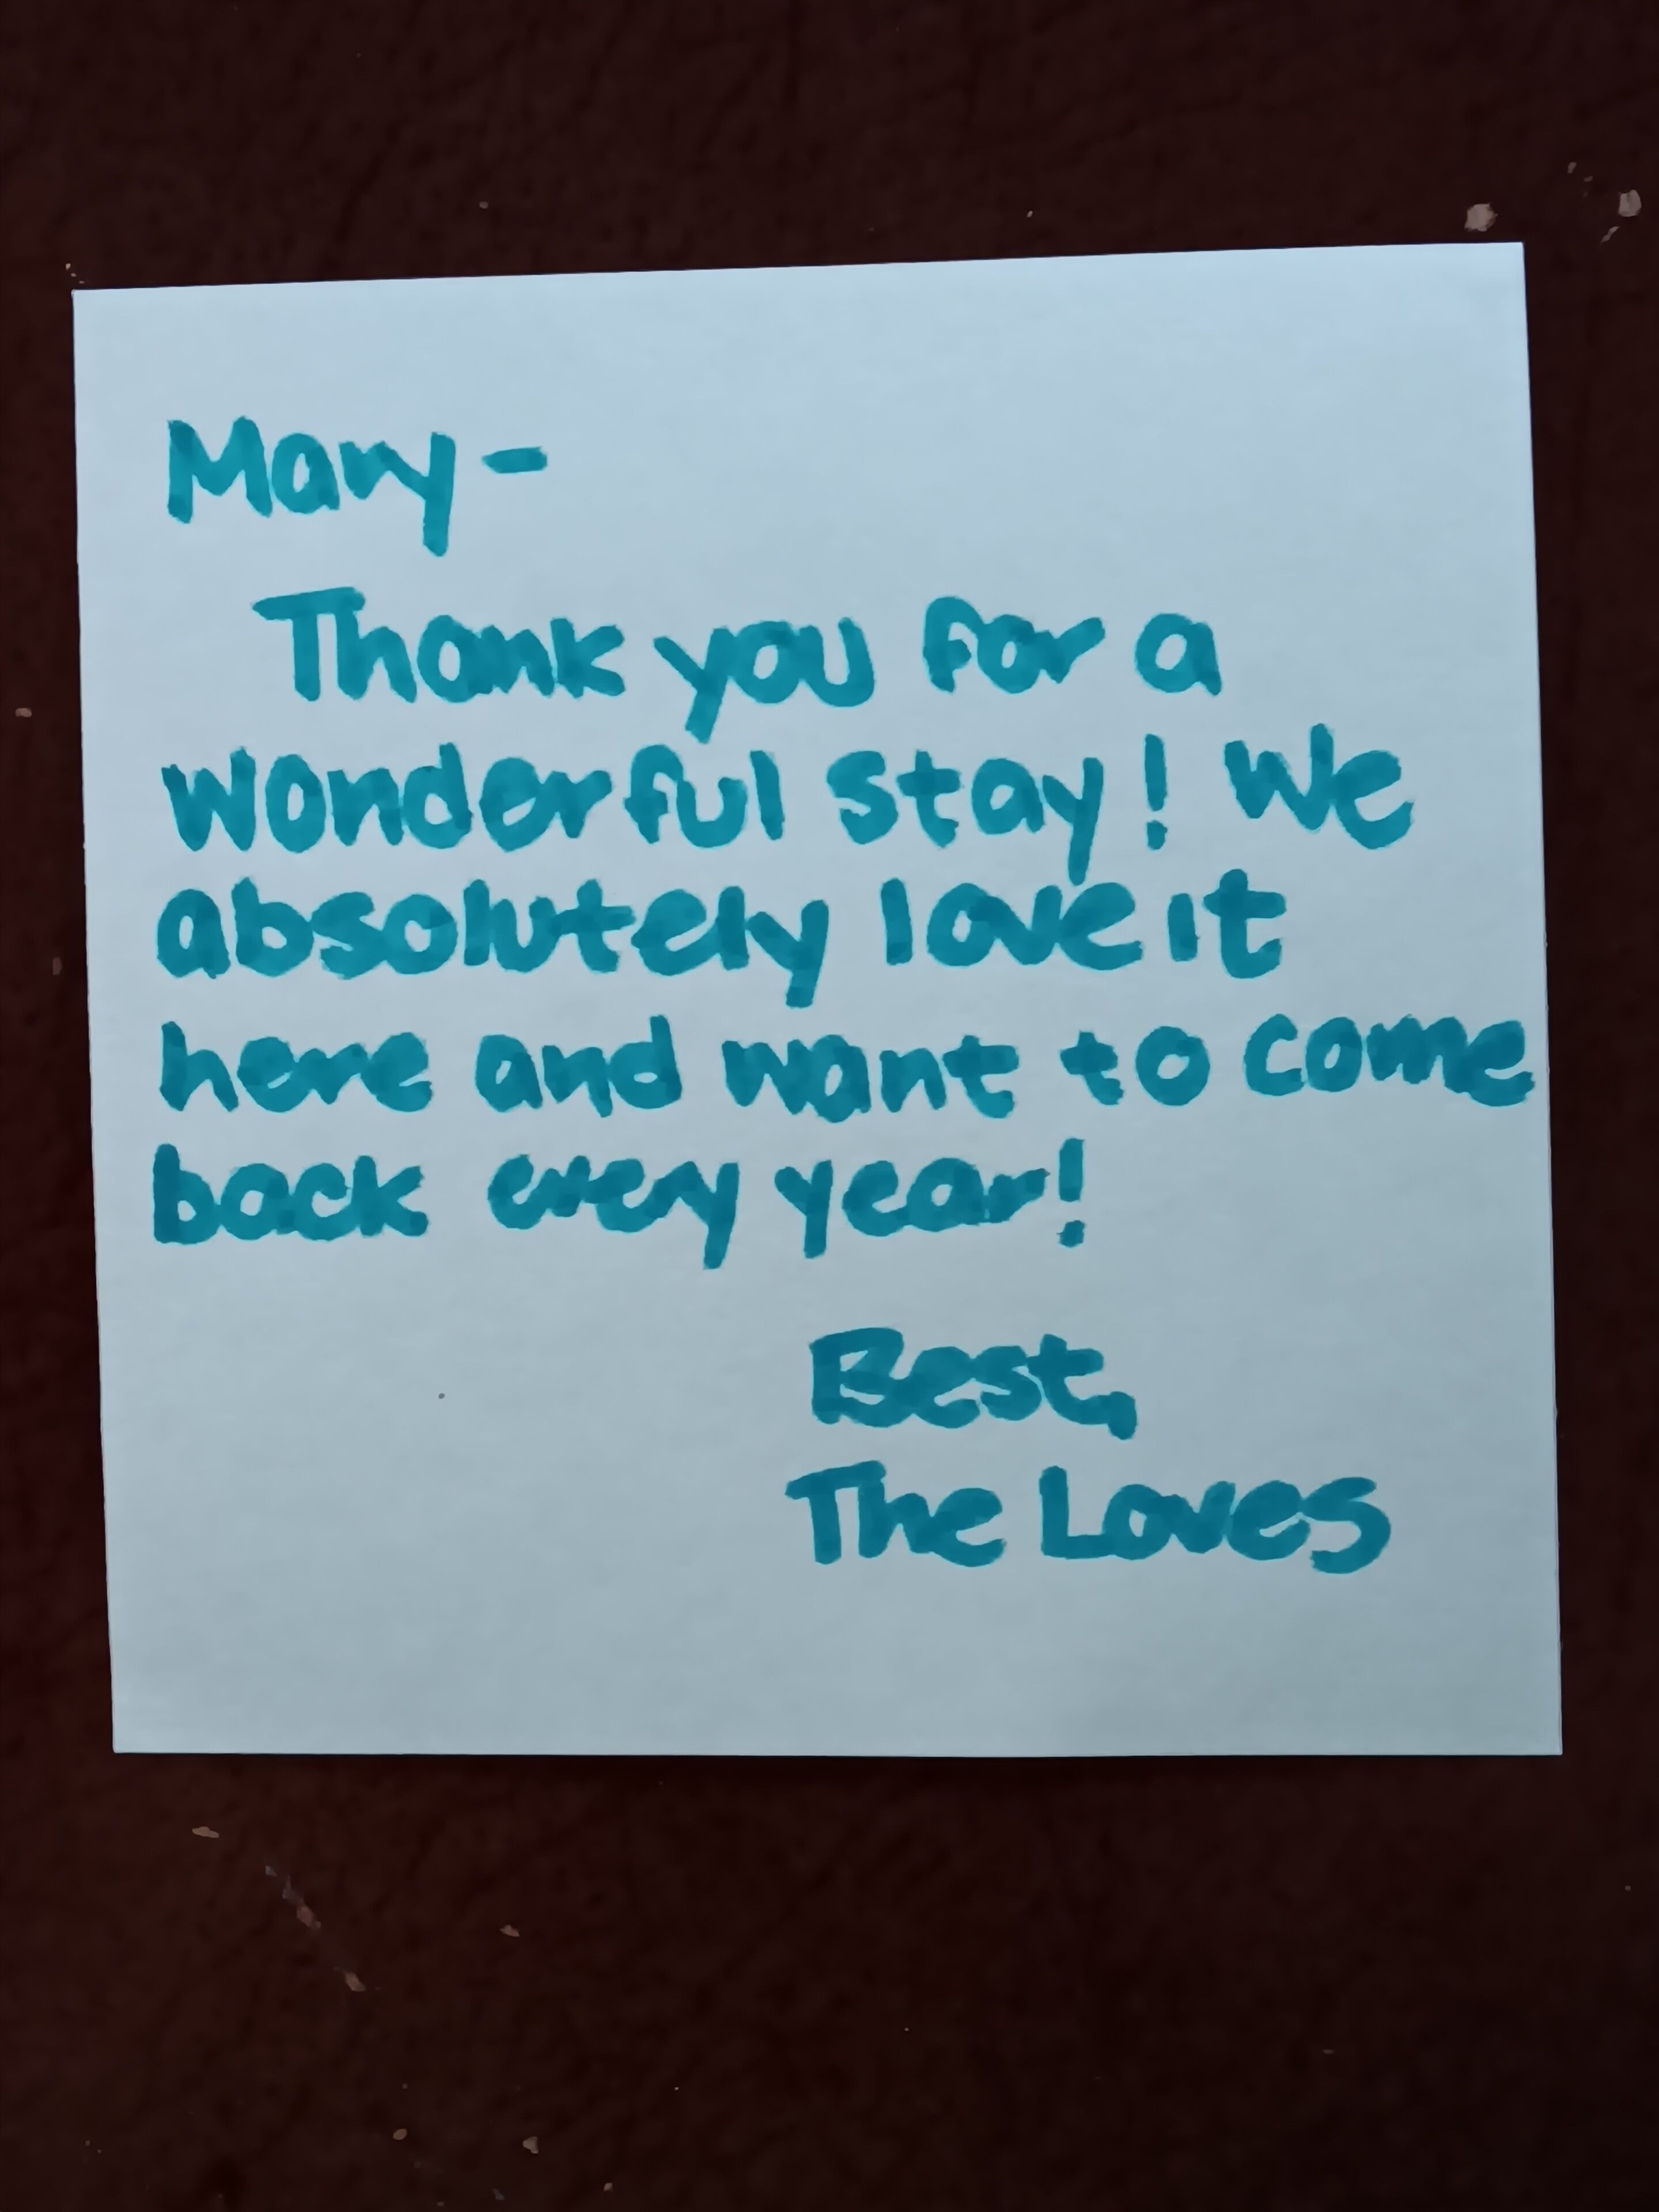 Mary-
Thank you for a
wonderful stay! We
absolutely love it
here and want to come
back every year!
Best,
The Loves